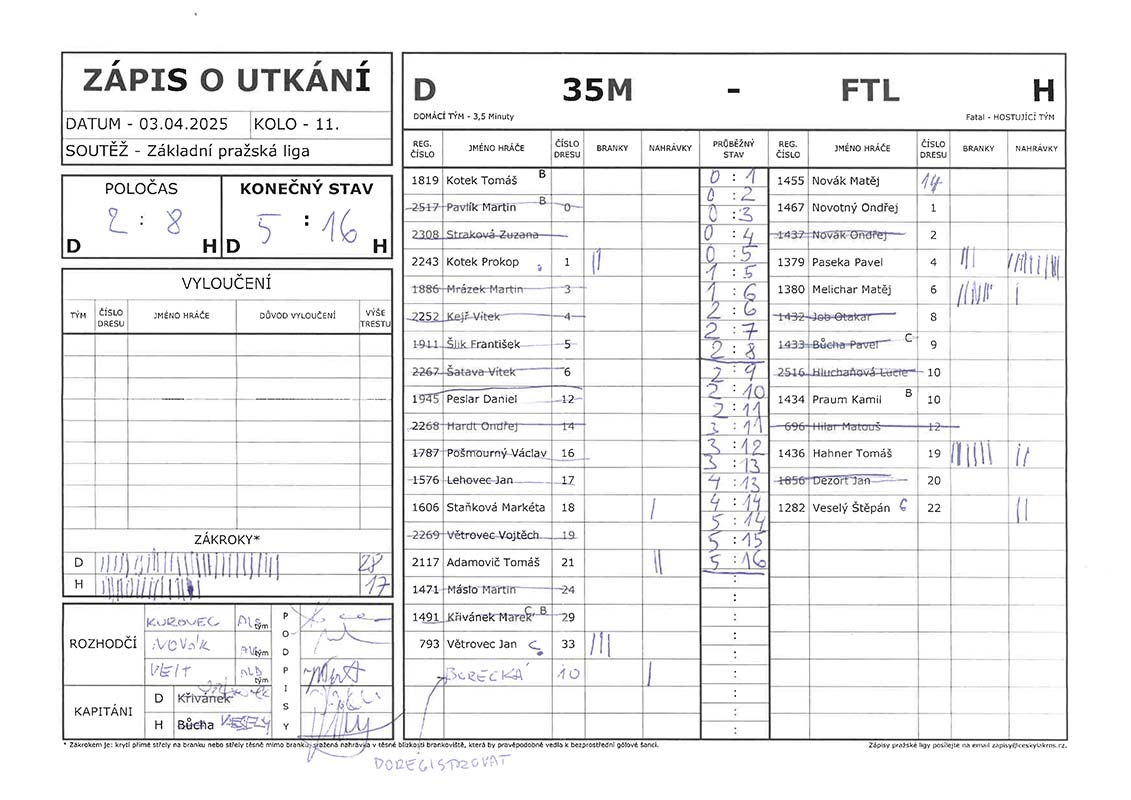 ZÁPIS O UTKÁNÍ
DATUM - 03.04.2025 KOLO - 11.
SOUTĚŽ - Základní pražská liga
POLOČAS KONEČNÝ STAV
2 : 8 5 : 16
D H D H
VYLOUČENÍ
TÝM ČÍSLO DRESU JMÉNO HRÁČE DŮVOD VYLOUČENÍ VÝŠE TRESTU
ZÁKROKY*
D 28
H 17
ROZHODČÍ
KUROVEC tým
NOVÁK tým
VEIT ALD tým
PODPISY
KAPITÁNI
D Křivánek
H Bůcha VESELÝ
D 35M - FTL H
DOMÁCÍ TÝM - 3,5 Minuty Fatal - HOSTUJÍCÍ TÝM
REG. ČÍSLO JMÉNO HRÁČE ČÍSLO DRESU BRANKY NAHRÁVKY PRŮBĚŽNÝ STAV REG. ČÍSLO JMÉNO HRÁČE ČÍSLO DRESU BRANKY NAHRÁVKY
1819 Kotek Tomáš B
2517 Pavlík Martin B 0
2308 Straková Zuzana
2243 Kotek Prokop 1 ||
1886 Mrázek Martin 3
2252 Kejř Vítek 4
1911 Šlik František 5
2267 Šatava Vítek 6
1945 Peslar Daniel 12
2268 Hardt Ondřej 14
1787 Pošmourný Václav 16
1576 Lehovec Jan 17
1606 Staňková Markéta 18 |
2269 Větrovec Vojtěch 19
2117 Adamovič Tomáš 21 ||
1471 Máslo Martin 24
1491 Křivánek Marek C, B 29
793 Větrovec Jan C 33 |||
BURECKÁ 10 |
0 : 1
0 : 2
0 : 3
0 : 4
0 : 5
1 : 5
1 : 6
2 : 6
2 : 7
2 : 8
2 : 9
2 : 10
2 : 11
3 : 11
3 : 12
3 : 13
4 : 13
4 : 14
5 : 14
5 : 15
5 : 16
:
:
:
:
:
:
:
:
:
1455 Novák Matěj 14
1467 Novotný Ondřej 1
1437 Novák Ondřej 2
1379 Paseka Pavel 4 |||
1380 Melichar Matěj 6 |
1432 Job Otakar 8
1433 Bůcha Pavel C 9
2516 Hluchaňová Lucie 10
1434 Praum Kamil B 10
696 Hilar Matouš 12
1436 Hahner Tomáš 19 ||
1856 Dezort Jan 20
1282 Veselý Štěpán C 22 ||
* Zákrokem je: krytí přímé střely na branku nebo střely těsně mimo branku, sražená nahrávka v těsné blízkosti brankoviště, která by pravěpodobně vedla k bezprostřední gólové šanci.
Zápisy pražské ligy posílejte na email zapisy@ceskylakros.cz.
DOREGISTROVAT